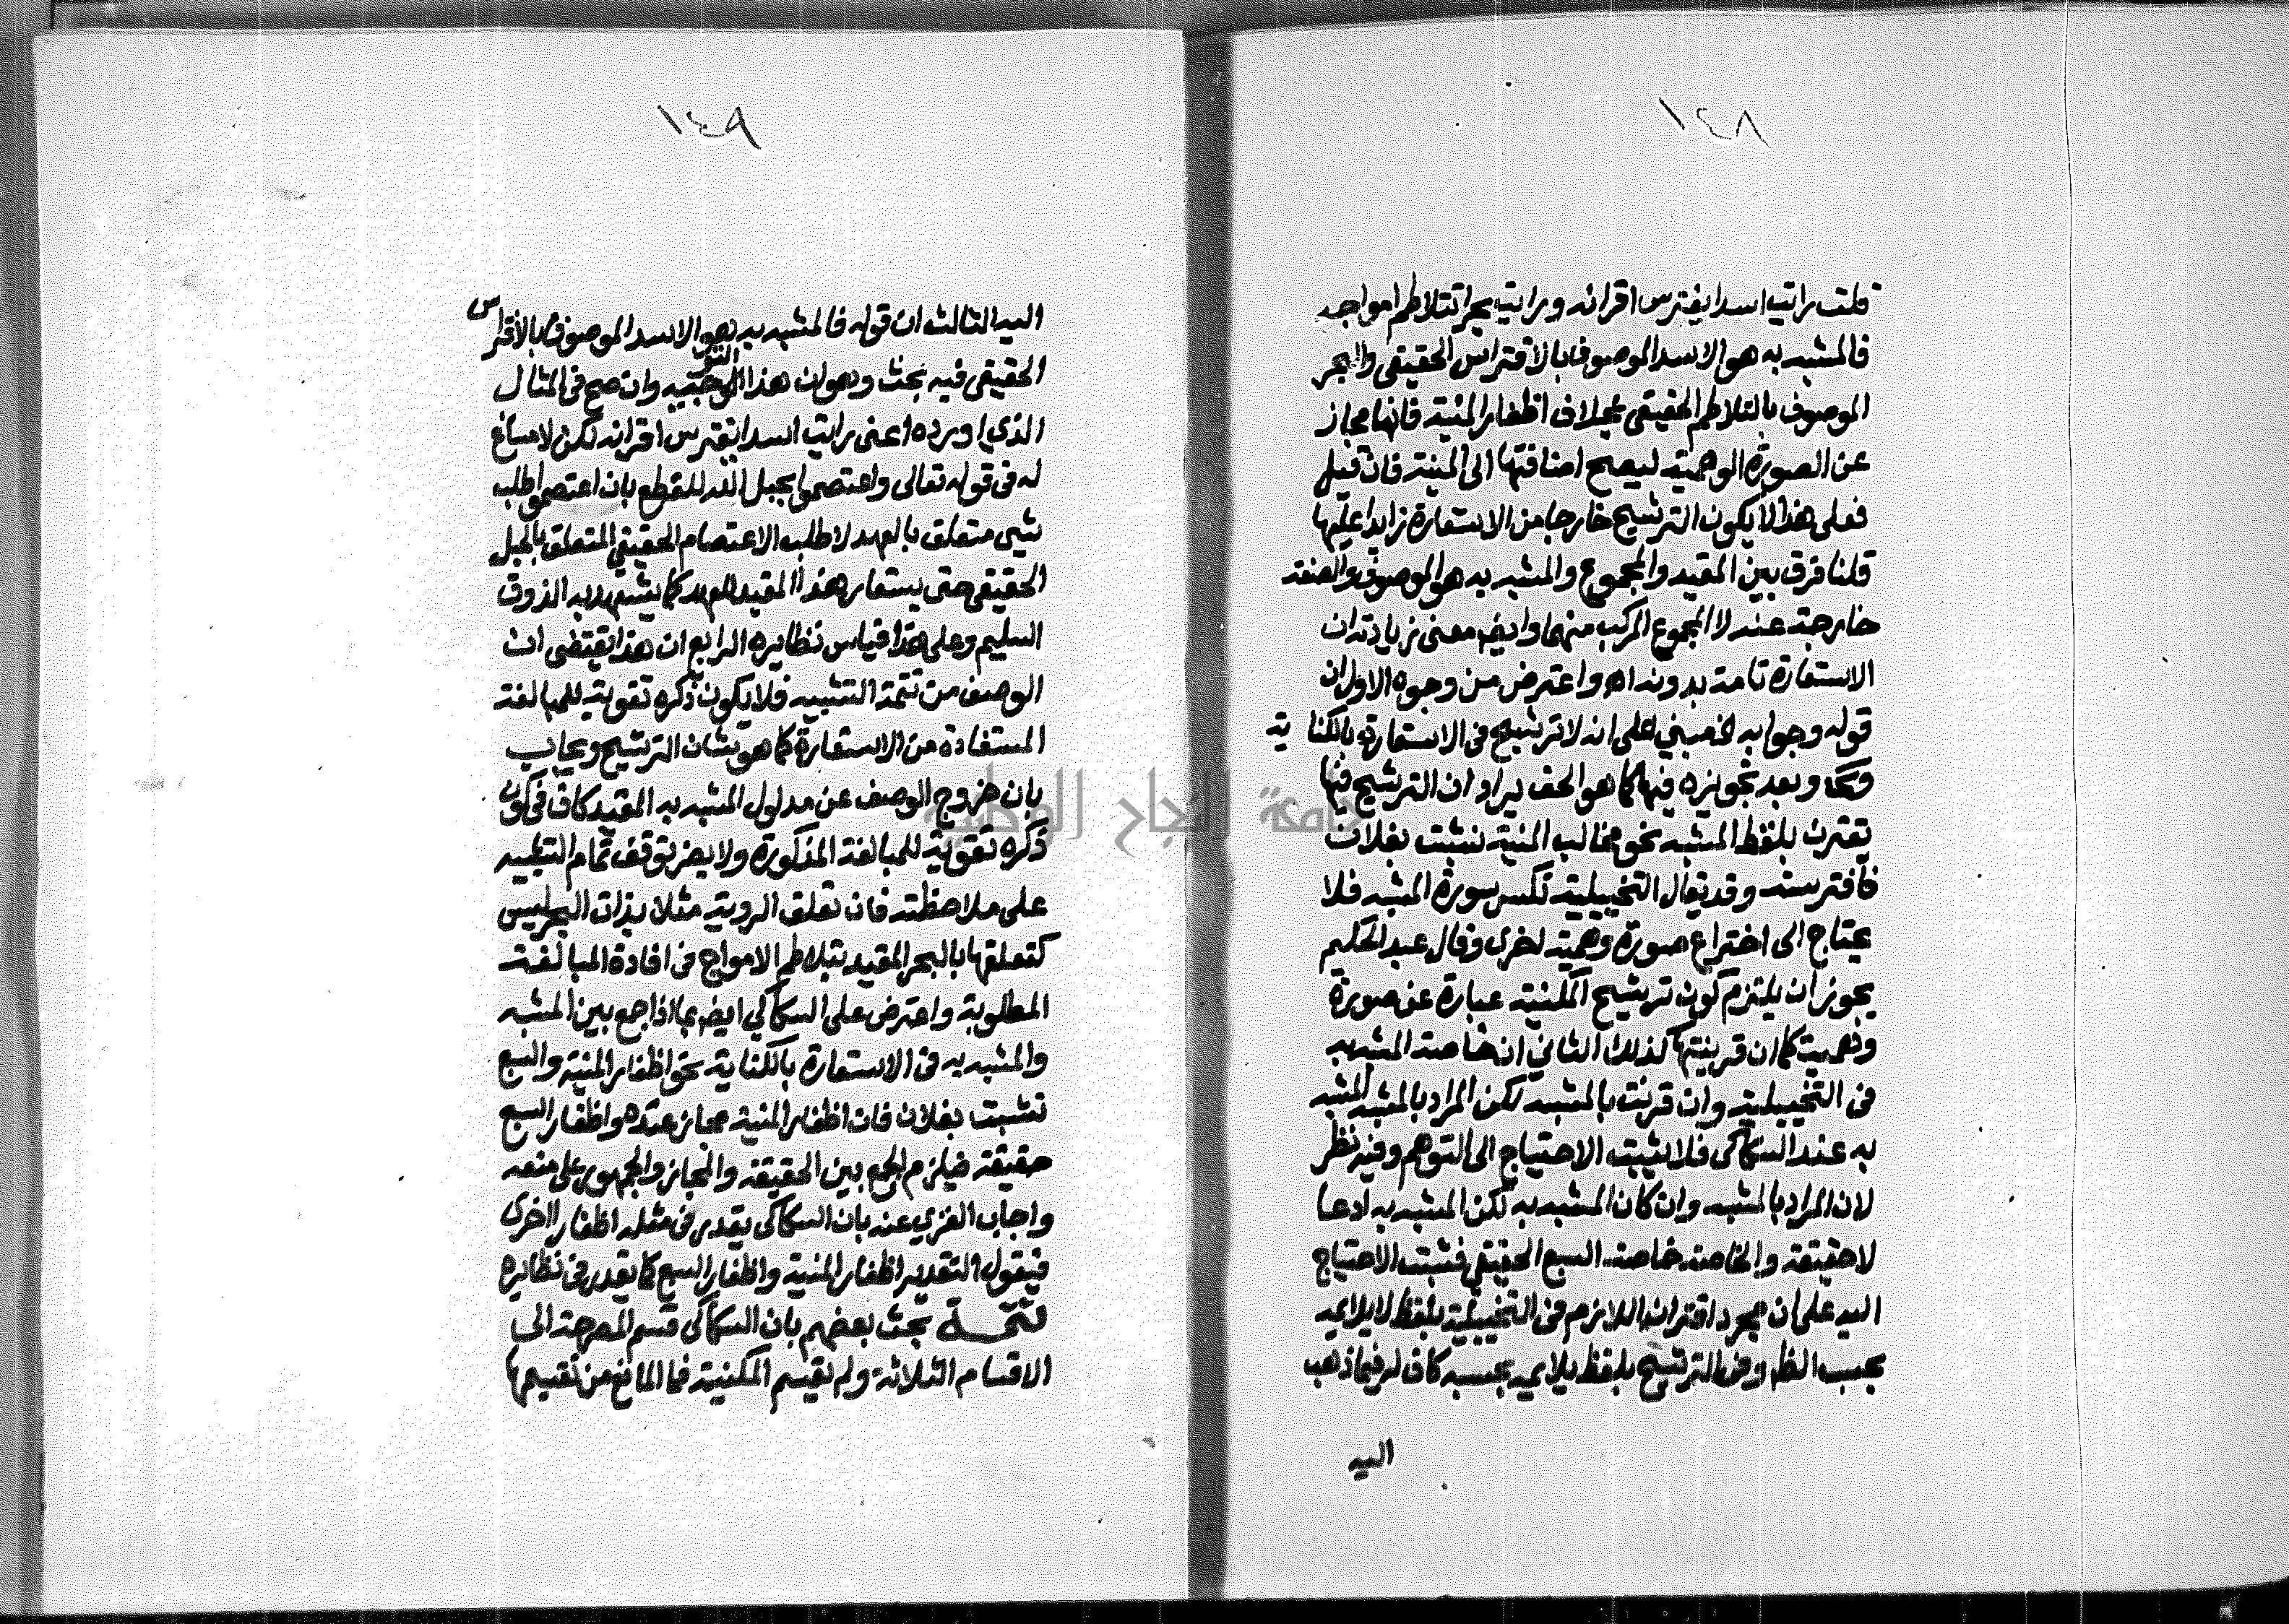 ١٤٨
قلت رايت اسدا يفترس اقرانه ورايت بحرا تتلاطم امواجه
فالمشبه به هو الاسد الموصوف بالافتراس الحقيقي والبحر
الموصوف بالتلاطم الحقيقي بخلاف اظفار المنية فانها مجاز
عن الصورة الوهمية ليصح اضافتها الى المنية فان قيل
فعلى هذا لا يكون الترشيح خارجا من الاستعارة زايدا عليها
قلنا فرق بين المقيد والمجموع والمشبه به هو الموصوف والصفة
خارجة عنه لا المجموع المركب منهما وايضا معنى زيادته ان
الاستعارة تامة بدونه اه واعترض من وجوه الاول ان
قوله وجوابه مبني على انه لا ترشيح في الاستعارة بالكناية
وبعد تجويزه فيها كما هو الحق يراد ان الترشيح فيها
تقترن بلفظ المشبه نحو مخالب المنية نشبت بفلان
فافترسته وقد يقال التخييلية تكسر سورة المشبه فلا
يحتاج الى اختراع صورة وهمية اخرى وقال عبد الحكيم
يجوز ان يلتزم كون ترشيح المكنية عبارة عن صورة
وهمية كما ان قرينتها كذلك الثاني ان خاصة المشبه به
في التخييلية وان قرنت بالمشبه لكن المراد بالمشبه المشبه
به عند السكاكي فلا يثبت الاحتياج الى التوهم وفيه نظر
لان المراد بالمشبه وان كان المشبه به لكن المشبه به ادعا
لا حقيقة والخاصة خاصة السبع الحقيقي فثبت الاحتياج
اليه على ان مجرد اقتران اللازم في التخييلية بلفظ لا يلايمه
بحسب الظا وفي الترشيح بلفظ يلايمه بحسبه كاف له فيما ذهب
اليه
١٤٩
اليه الثالث ان قوله فالمشبه به هو الاسد الموصوف بالافتراس
الحقيقي فيه بحث وهو ان هذا التوجيه وان صح في المثال
الذي اورده اعنى رايت اسدا يفترس اقرانه لكن لا مساغ
له في قوله تعالى واعتصموا بحبل الله للقطع بان اعتصموا طلب
شيى متعلق بالعهد لا طلب الاعتصام الحقيقي المتعلق بالحبل
الحقيقي حتى يستعار هذا المقيد للعهد كما يشهد به الذوق
السليم وعلى هذا قياس نظايره الرابع ان هذا يقتضى ان
الوصف من تتمة التشبيه فلا يكون ذكره تقوية للمبالغة
المستفادة من الاستعارة كما هو شان الترشيح ويجاب
بان خروج الوصف عن مدلول المشبه به المقيد كاف في كون
ذكره تقوية للمبالغة المذكورة ولا يضر توقف تمام التشبيه
على ملاحظته فان تعلق الروية مثلا بذات البحر ليس
كتعلقها بالبحر المقيد بتلاطم الامواج في افادة المبالغة
المطلوبة واعترض على السكاكي ايضا بما اذا جمع بين المشبه
والمشبه به في الاستعارة بالكناية نحو اظفار المنية والسبع
نشبت بفلان فان اظفار المنية مجاز عنده واظفار السبع
حقيقة فيلزم الجمع بين الحقيقة والمجاز والجمهور على منعه
واجاب الغزي عنه بان السكاكي يقدر في مثله اظفار اخرى
فيقول التقدير اظفار المنية واظفار السبع كما يقدر في نظايره
تتمة بحث بعضهم بان السكاكي قسم المصرحة الى
الاقسام الثلاثة ولم يقسم المكنية فما المانع من تقسيمها
جامعة النجاح الوطنية